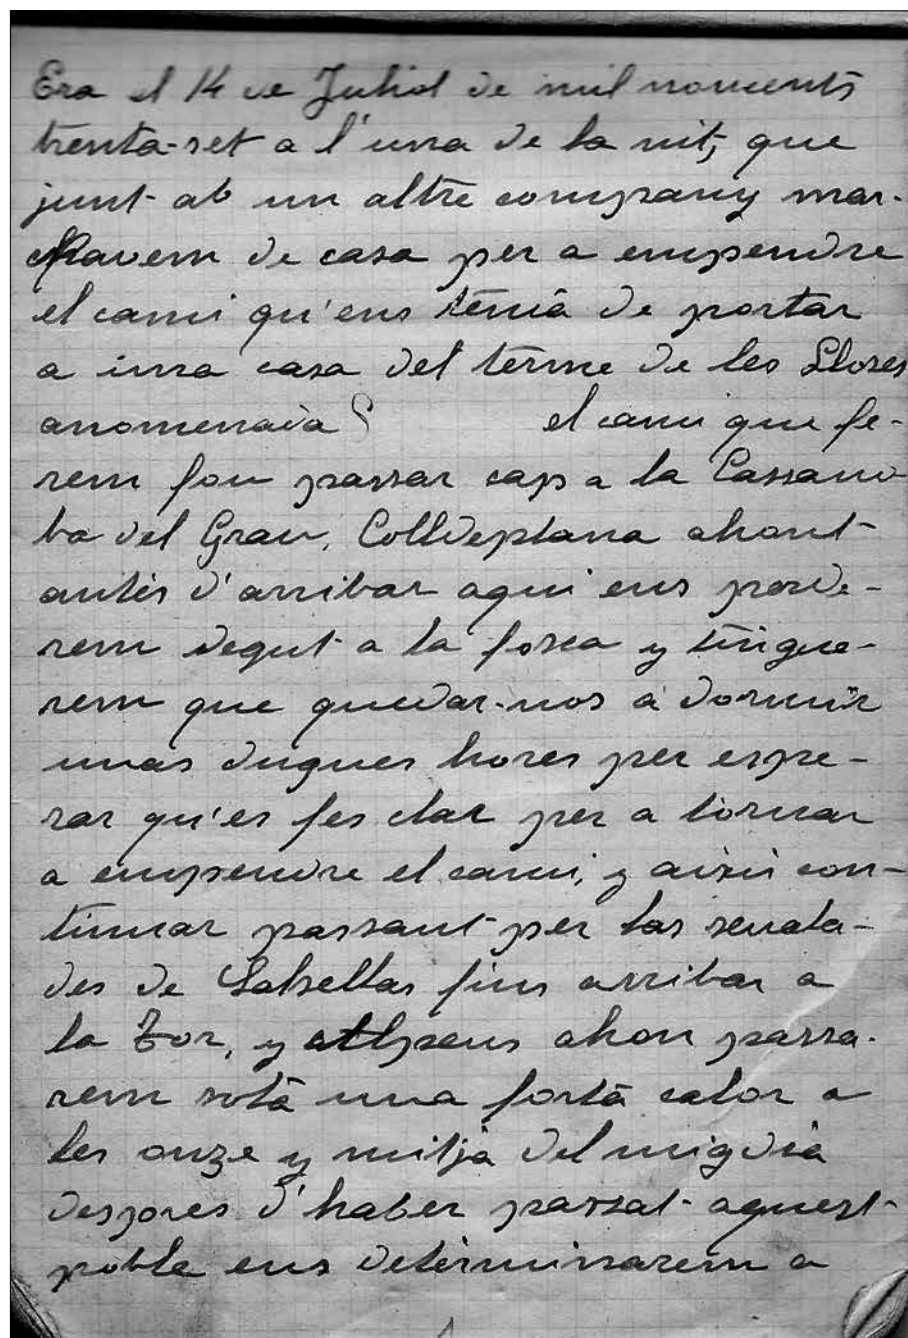 Era el 14 de Juliol de mil noucents
trenta-set a l'una de la nit, que
junt ab un altre company mar-
chavem de casa per a empendre
el cami qu'ens tenia de portar
a una casa del terme de les Lloses
anomenada el cami que fe-
rem fou passar cap a la Cassano
ba del Grau, Colldeplana ahont
antes d'arribar aqui ens perde-
rem degut a la fosca y tingue-
rem que quedar-nos a dormir
unas dugues hores per espe-
rar qu'es fes clar per a tornar
a empendre el cami, y aixis con-
tinuar passant per las
des de fins arribar a
la Tor, y Alpens ahon passa-
rem sota una forta calor a
les onze y mitja del migdia
despres d'haber passat aquest
poble ens determinarem a
1